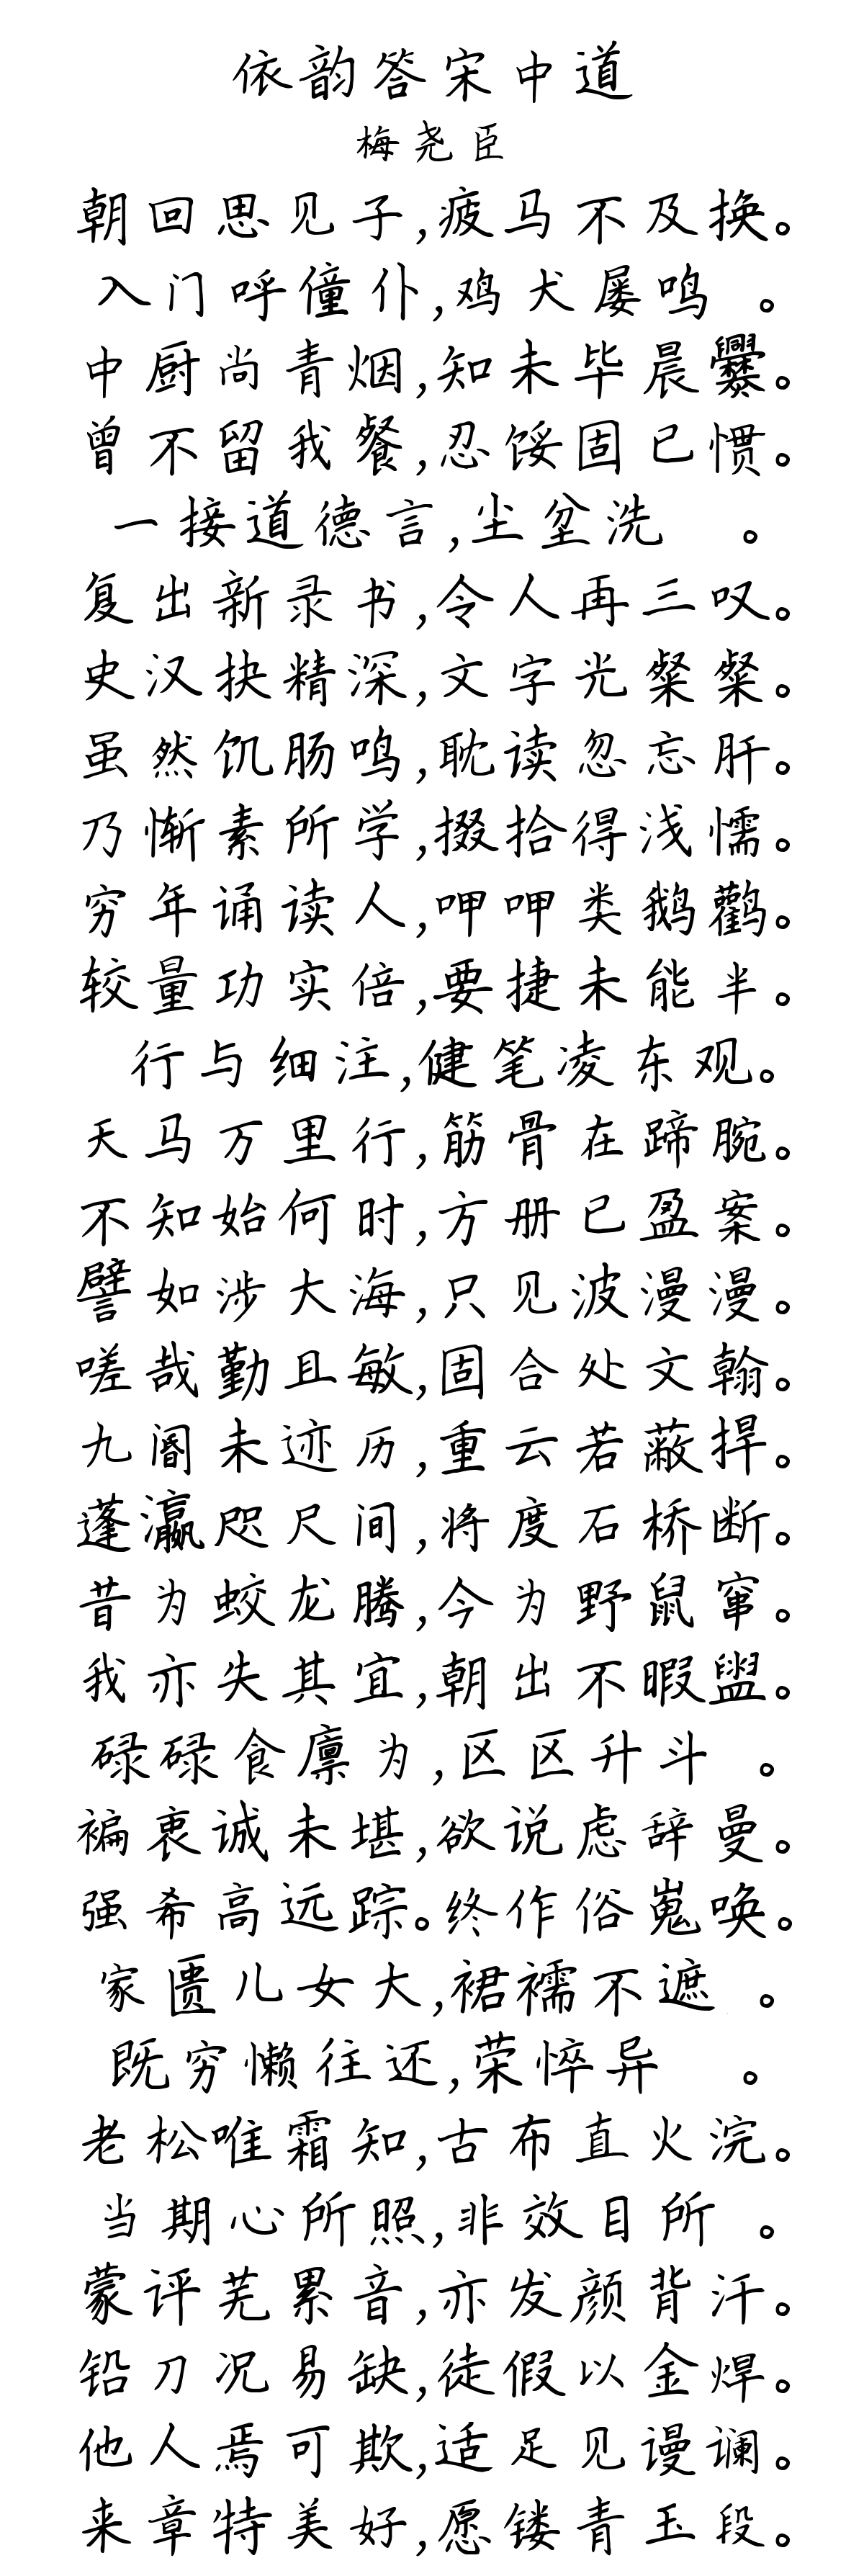 依韵答宋中道
梅尧臣
朝回思见子,疲马不及换。
入门呼僮仆,鸡犬屡鸣 。
中厨尚青烟,知未毕晨爨。
曾不留我餐,忍馁固已惯。
一接道德言,尘坌洗 。
复出新录书,令人再三叹。
史汉抉精深,文字光粲粲。
虽然饥肠鸣,耽读忽忘肝。
乃惭素所学,掇拾得浅懦。
穷年诵读人,呷呷类鹅鹳。
较量功实倍,要捷未能半。
行与细注,健笔凌东观。
天马万里行,筋骨在蹄腕。
不知始何时,方册已盈案。
譬如涉大海,只见波漫漫。
嗟哉勤且敏,固合处文翰。
九阍未迹历,重云若蔽捍。
蓬瀛咫尺间,将度石桥断。
昔为蛟龙腾,今为野鼠窜。
我亦失其宜,朝出不暇盥。
碌碌食廪为,区区升斗 。
褊衷诚未堪,欲说虑辞曼。
强希高远踪。终作俗嵬唤。
家匮儿女大,裙襦不遮 。
既穷懒往还,荣悴异 。
老松唯霜知,古布直火浣。
当期心所照,非效目所 。
蒙评芜累音,亦发颜背汗。
铅刀况易缺,徒假以金焊。
他人焉可欺,适足见谩谰。
来章特美好,愿镂青玉段。